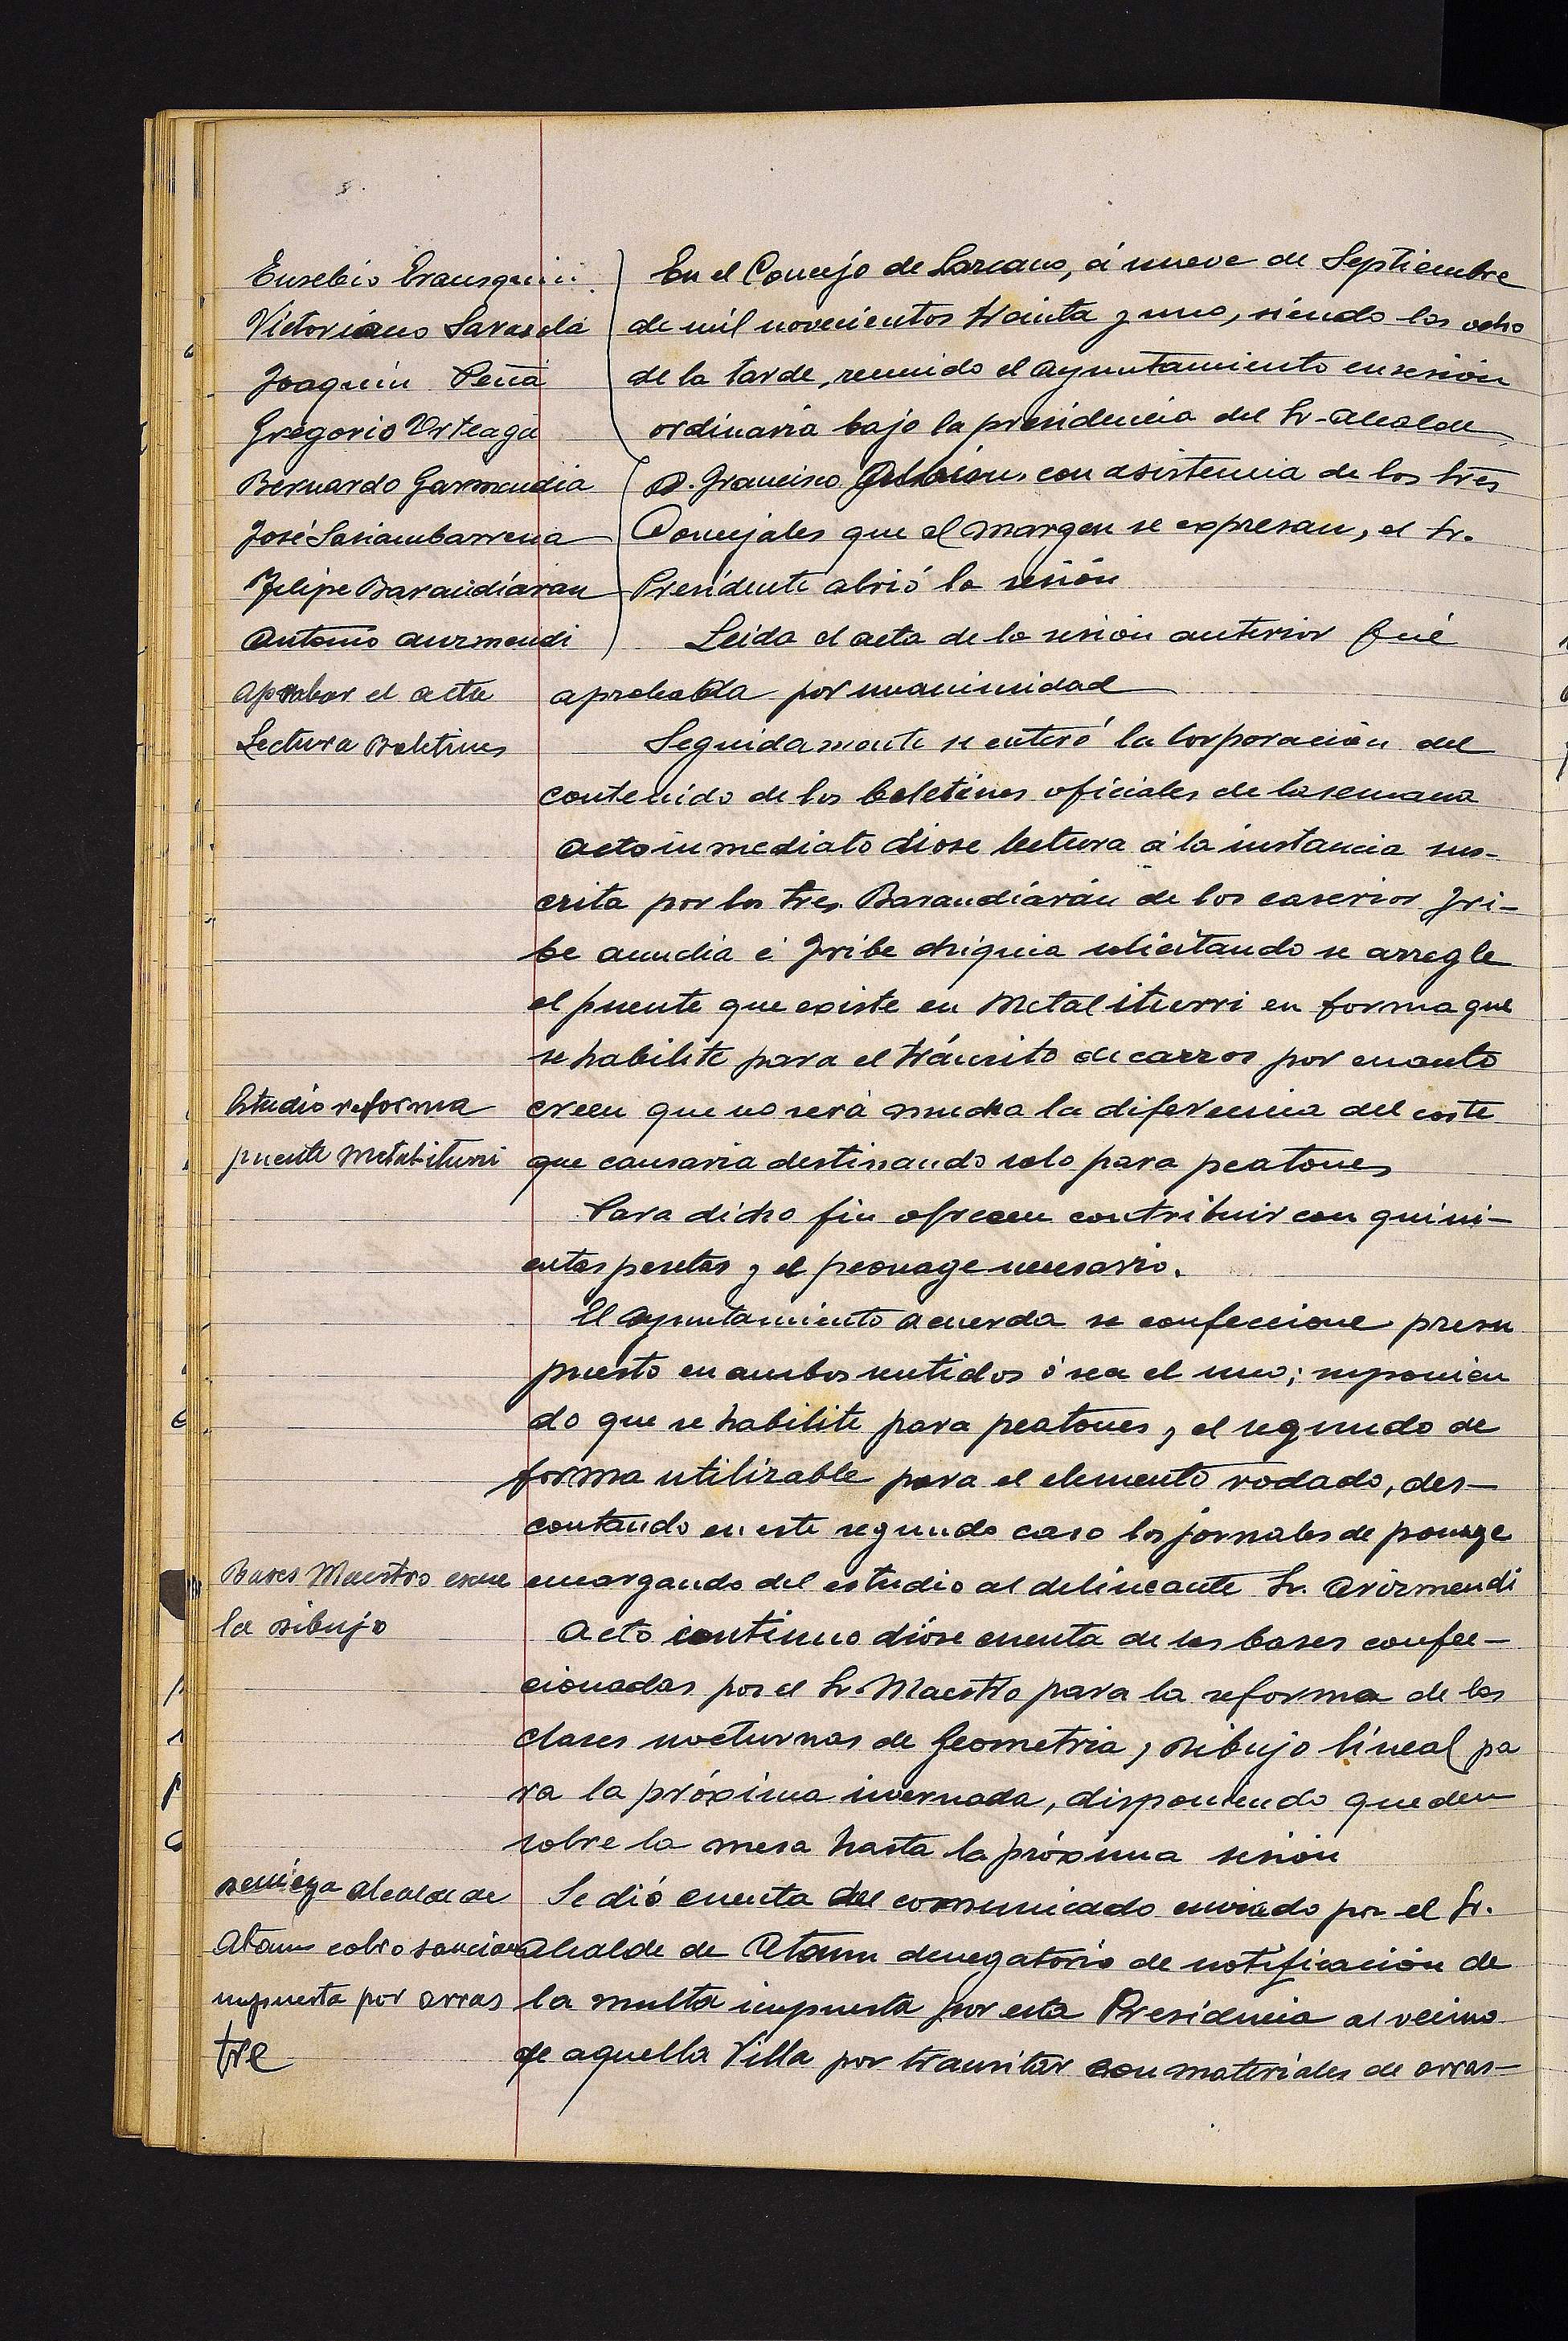 Eusebio Erausquin
Victoriano Sarasola
Joaquin Peña
Gregorio Urteaga
Bernardo Garmendia
José Sasiambarrena
Felipe Barandiáran
Antonio Aurmendi
En el Concejo de Lazcano, á nueve de Septiembre
de mil novecientos treinta y uno, siendo las ocho
de la tarde, reunido el Ayuntamiento en sesión
ordinaria bajo la presidencia del Sr. Alcalde
D. Francisco con asistencia de los Sres
Concejales que al margen se expresan, el Sr.
Presidente abrió la sesión
Aprobar el acta
Leida el acta de la sesion anterior fué
aprobada por unanimidad
Lectura Boletines
Seguidamente se enteró la Corporación del
contenido de los boletines oficiales de la semana
Acto inmediato diose lectura á la instancia sus-
crita por los Sres. Barandiárán de los caserios Iri-
be aundia é Iribe chiquia solicitando se arregle
el puente que existe en Metaliturri en forma que
se habilite para el tránsito de carros por cuanto
Estudio reforma
puente Metal-iturri
creen que no será mucha la diferencia del coste
que causaria destinando solo para peatones
Para dicho fin ofrecen contribuir con quini-
entas pesetas y el peonage necesario.
El Ayuntamiento acuerda se confeccione presu
puesto en ambos sentidos ó sea el uno; suponien
do que se habilite para peatones y el segundo de
forma utilizable para el elemento rodado, des-
contando en este segundo caso los jornales de ponage
Bases Maestro escue
la dibujo
encargando del estudio al delineante Sr. Arizmendi
Acto continuo dióse cuenta de las bases confec-
cionadas por el Sr. Maestro para la reforma de las
clases nocturnas de Geometria y dibujo líneal pa
ra la próxima invernada, disponiendo queden
sobre la mesa hasta la próxima sesión
Deniega Alcalde de
Ataun cobro sancion
impuesta por arras
tre
Se dió cuenta del comunicado enviado por el Sr.
Alcalde de Ataun denegatorio de notificación de
la multa impuesta por esta Presidencia al vecino
de aquella Villa por transitar con materiales de arras-